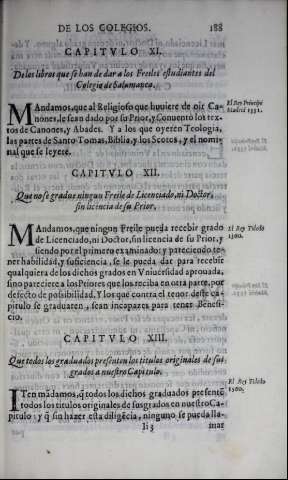 DE LOS COLEGIOS. 188
CAPITVLO XI.
De los libros que se han de dar a los Freiles estudiantes del
Colegio de Salamanca.
MAndamos, que al Religioso que huuiere de oir Ca-
nones, le sean dado por su Prior, y Conuento los tex-
tos de Canones, y Abades. Y a los que oyeren Teologia,
las partes de Santo Tomas, Biblia, y los Scotos, y el nomi-
nal que se leyere.
El Rey Principe
Madrid 1552.
CAPITVLO XII.
Que no se gradue ningun Freile de Licenciado, ni Doctor,
sin licencia de su Prior.
MAndamos, que ningun Freile pueda recebir grado
de Licenciado, ni Doctor, sin licencia de su Prior, y
siendo por el primero examinado: y pareciendo te-
ner habilidad, y suficiencia, se le pueda dar para recebir
qualquiera de los dichos grados en Vniuersidad aprouada,
sino pareciere a los Priores que los reciba en otra parte, por
defecto de possibilidad. Y los que contra el tenor deste ca-
pitulo se graduaren, sean incapazes para tener Benefi-
cio.
El Rey Toledo
1560.
CAPITVLO XIII.
Que todos los graduados presenten los titulos originales de sus
grados a nuestro Capitulo.
ITen mãdamos, q̃ todos los dichos graduados presentẽ
todos los titulos originales de sus grados en nuestro Ca-
pitulo: y q̃ sin hazer esta diligẽcia, ninguno se pueda lla-
El Rey Toledo
1560.
Ii 3 mar